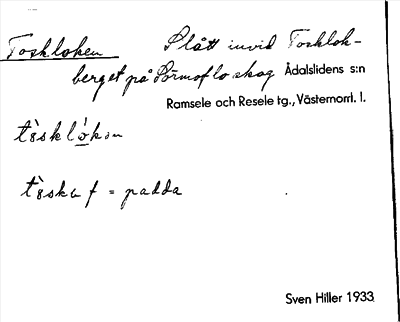 Toskloken Slått invid Tosklok-
berget på Sörmoflo skog Ådalslidens s:n
Ramsele och Resele tg., Västernorrl. l.
tòsklòkən
tòska f = padda
Sven Hiller 1933